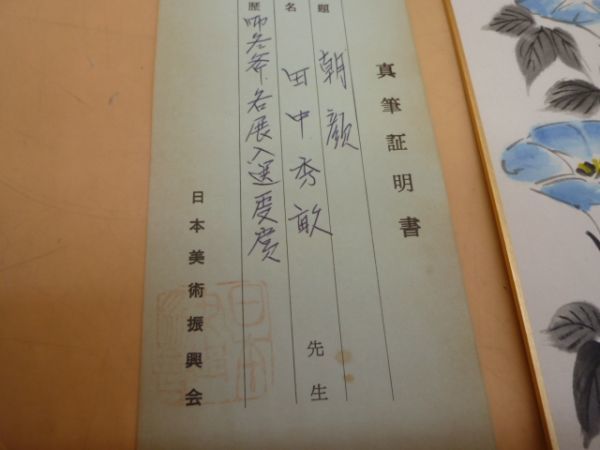 真筆証明書
題 朝顔
名 田中秀畝 先生
歴 師冬斧 各展入選受賞
日本美術振興会